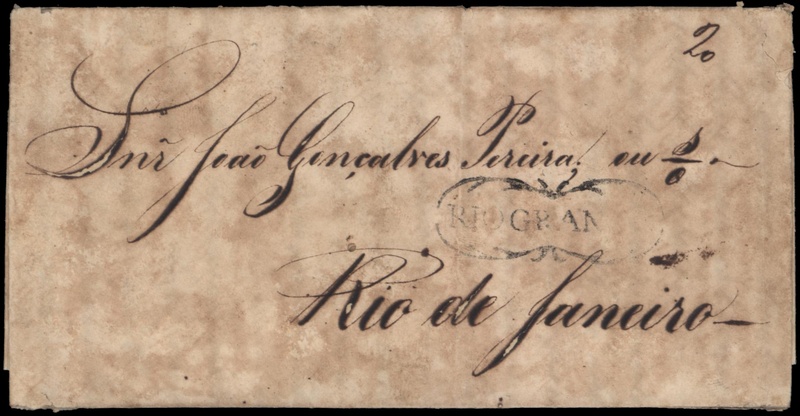 20
Snr̃ João Gonçalves Pereira, ou S/o.
RIO GRAN
Rio de Janeiro